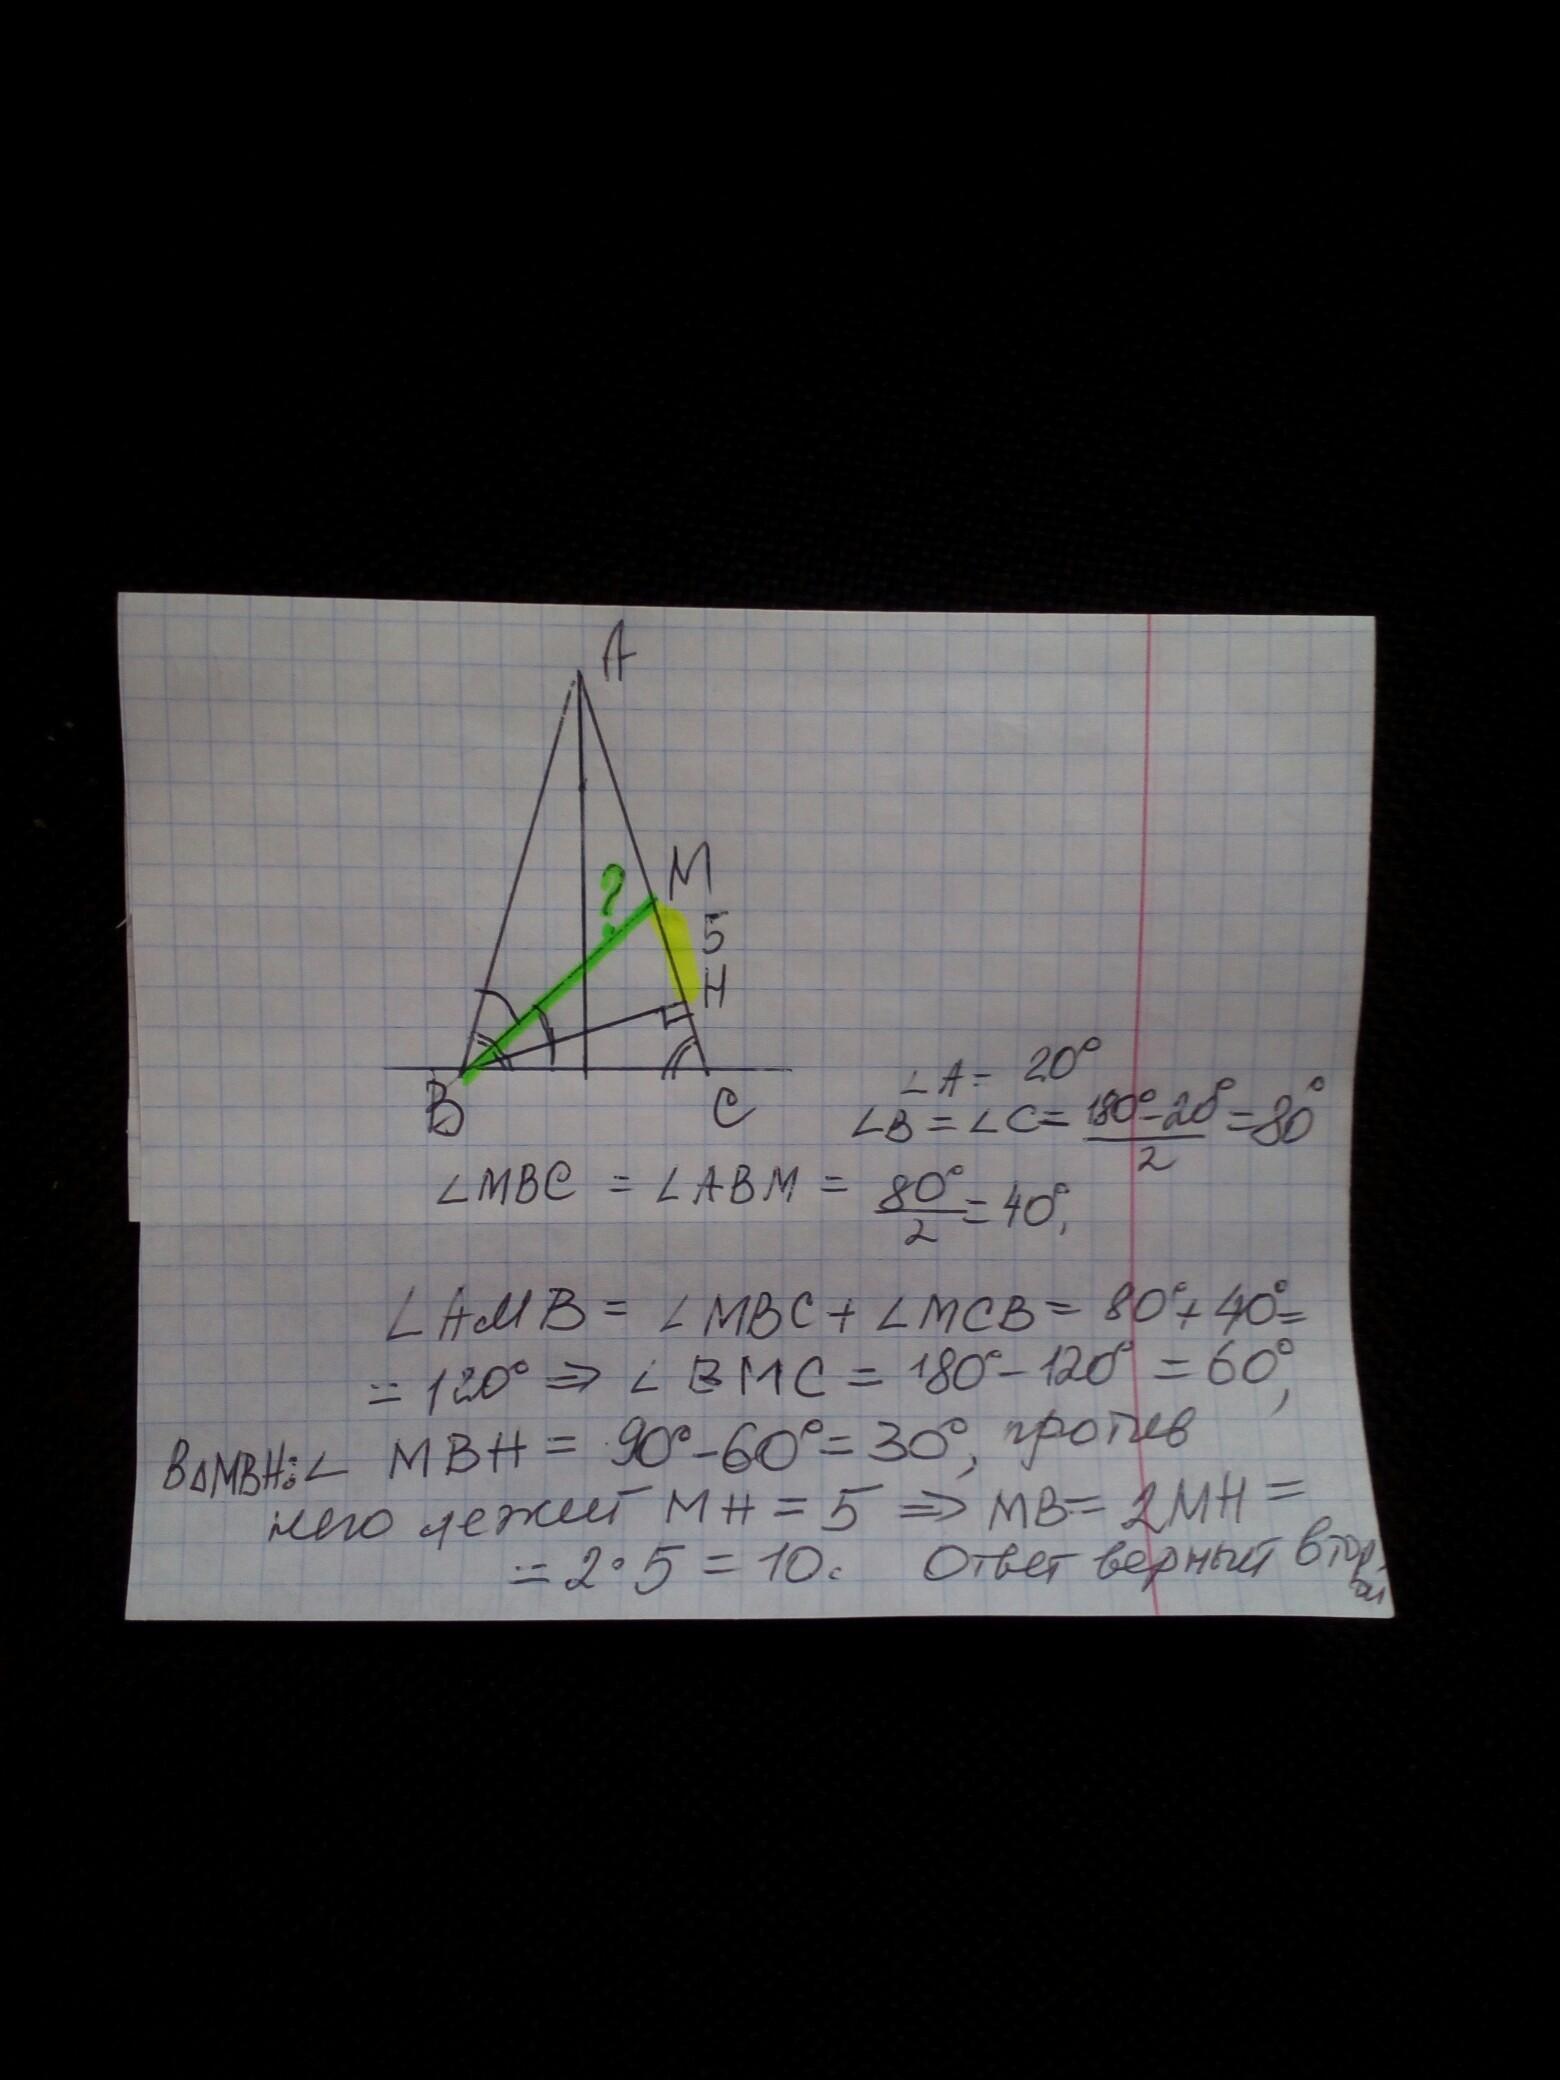 A
M
?
5
H
B
C
∠A = 20°
∠B = ∠C = (180° - 20°)/2 = 80°
∠MBC = ∠ABM = 80°/2 = 40°,
∠AMB = ∠MBC + ∠MCB = 80° + 40° =
= 120° ⇒ ∠BMC = 180° - 120° = 60°,
В△MBH: ∠ MBH = 90° - 60° = 30°, против
него лежит MH = 5 ⇒ MB = 2MH =
= 2·5 = 10. Ответ верный второй